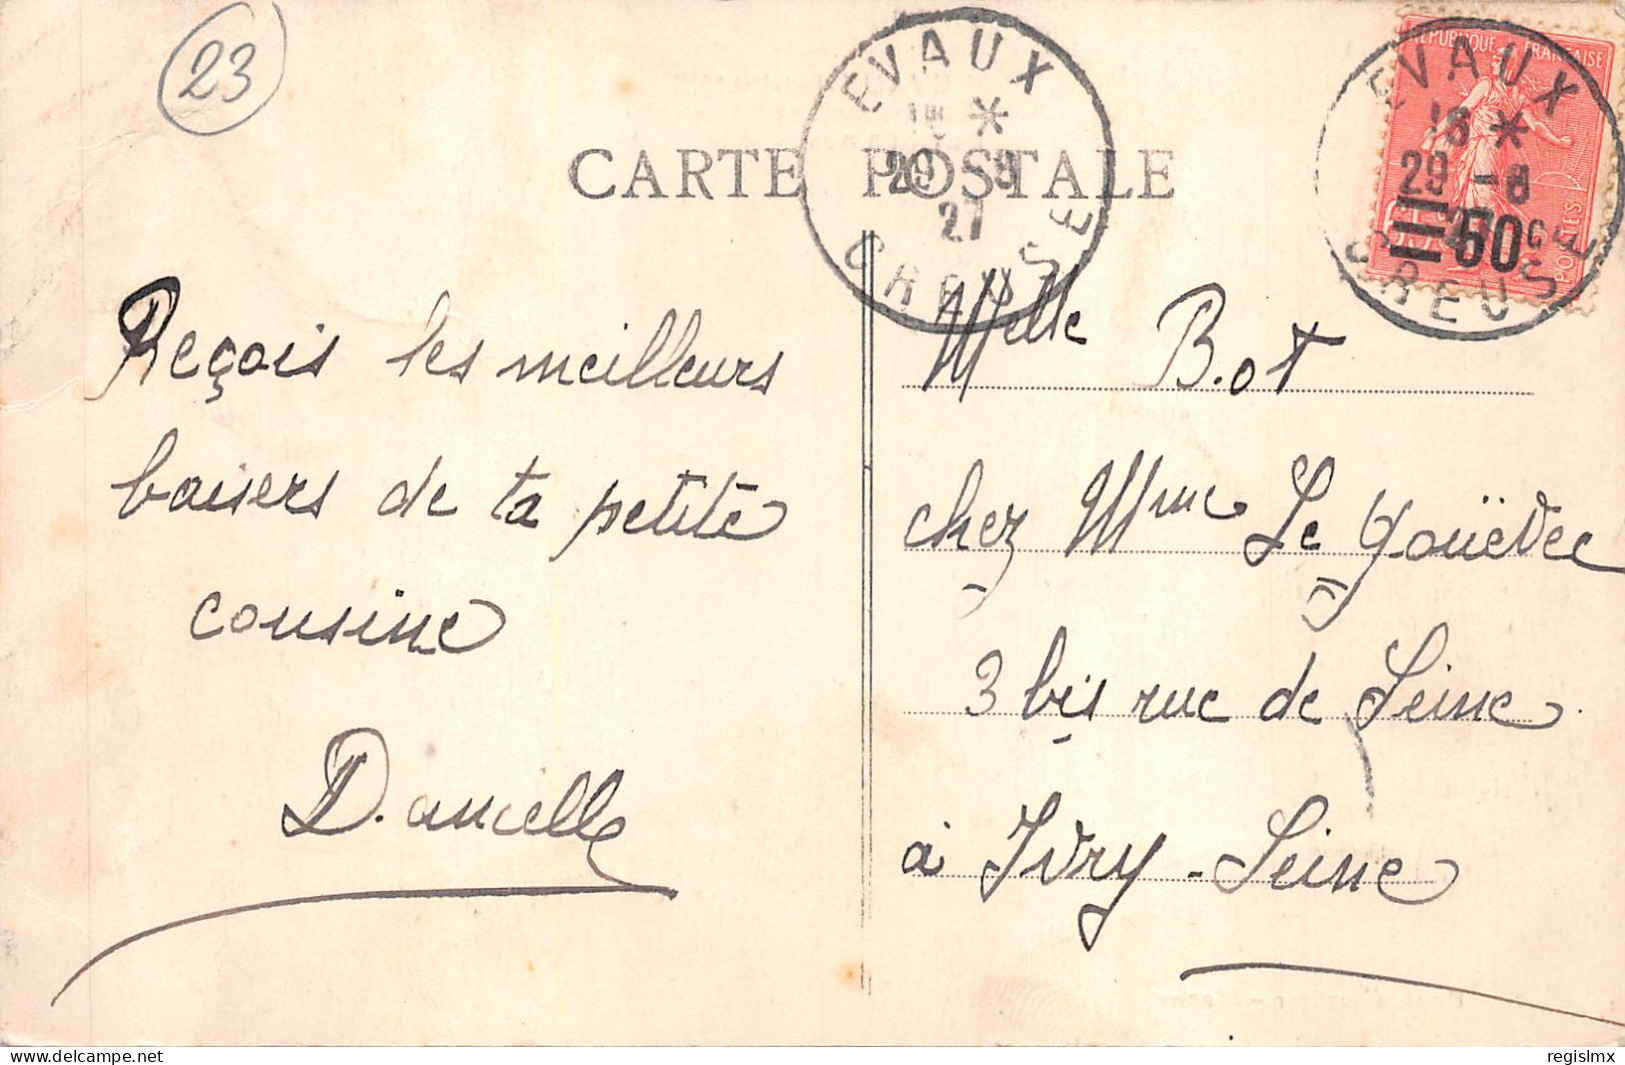 23
CARTE POSTALE
EVAUX
18 *
29 -8
27
CREUSE
EVAUX
18 *
29 -8
27
CREUSE
REPUBLIQUE FRANÇAISE
POSTES
50 c
Reçois les meilleurs
baisers de ta petite
cousine
Danielle
Melle B.ot
chez Mme Le Gouëvec
3 bis rue de Seine
à Ivry - Seine
delcampe.net
regislmx